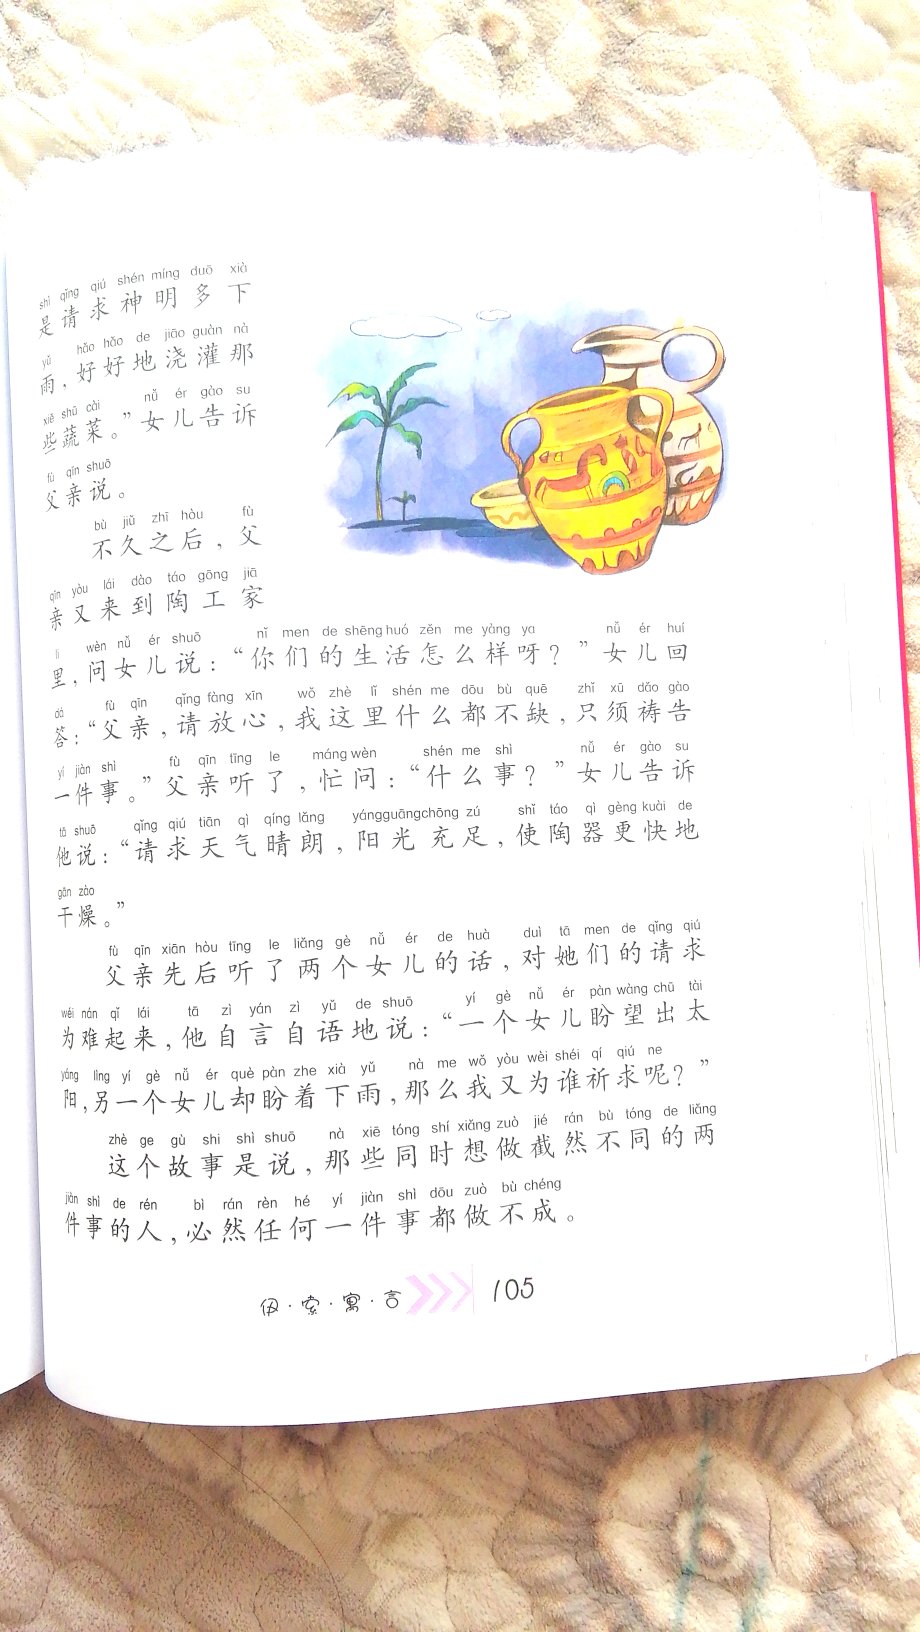 shì qǐng qiú shén míng duō xià
是请求神明多下
yǔ hǎo hǎo de jiāo guàn nà
雨，好好地浇灌那
xiē shū cài nǚ ér gào su
些蔬菜。”女儿告诉
fù qīn shuō
父亲说。
bù jiǔ zhī hòu fù
不久之后，父
qīn yòu lái dào táo gōng jiā
亲又来到陶工家
lǐ wèn nǚ ér shuō nǐ men de shēng huó zěn me yàng ya nǚ ér huí
里，问女儿说：“你们的生活怎么样呀？”女儿回
dá fù qīn qǐng fàng xīn wǒ zhè lǐ shén me dōu bù quē zhǐ xū dǎo gào
答：“父亲，请放心，我这里什么都不缺，只须祷告
yí jiàn shì fù qīn tīng le máng wèn shén me shì nǚ ér gào su
一件事。”父亲听了，忙问：“什么事？”女儿告诉
tā shuō qǐng qiú tiān qì qíng lǎng yáng guāng chōng zú shǐ táo qì gèng kuài de
他说：“请求天气晴朗，阳光充足，使陶器更快地
gān zào
干燥。”
fù qīn xiān hòu tīng le liǎng gè nǚ ér de huà duì tā men de qǐng qiú
父亲先后听了两个女儿的话，对她们的请求
wéi nán qǐ lái tā zì yán zì yǔ de shuō yí gè nǚ ér pàn wàng chū tài
为难起来，他自言自语地说：“一个女儿盼望出太
yáng lìng yí gè nǚ ér què pàn zhe xià yǔ nà me wǒ yòu wèi shéi qí qiú ne
阳，另一个女儿却盼着下雨，那么我又为谁祈求呢？”
zhè ge gù shi shì shuō nà xiē tóng shí xiǎng zuò jié rán bù tóng de liǎng
这个故事是说，那些同时想做截然不同的两
jiàn shì de rén bì rán rèn hé yí jiàn shì dōu zuò bù chéng
件事的人，必然任何一件事都做不成。
伊·索·寓·言 105